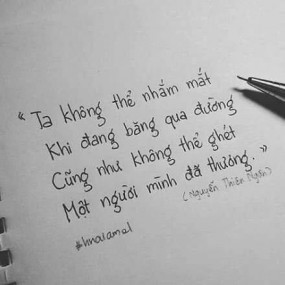 “ Ta không thể nhắm mắt
Khi đang băng qua đường
Cũng như không thể ghét
Một người mình đã thương. ”
(Nguyễn Thiên Ngân)